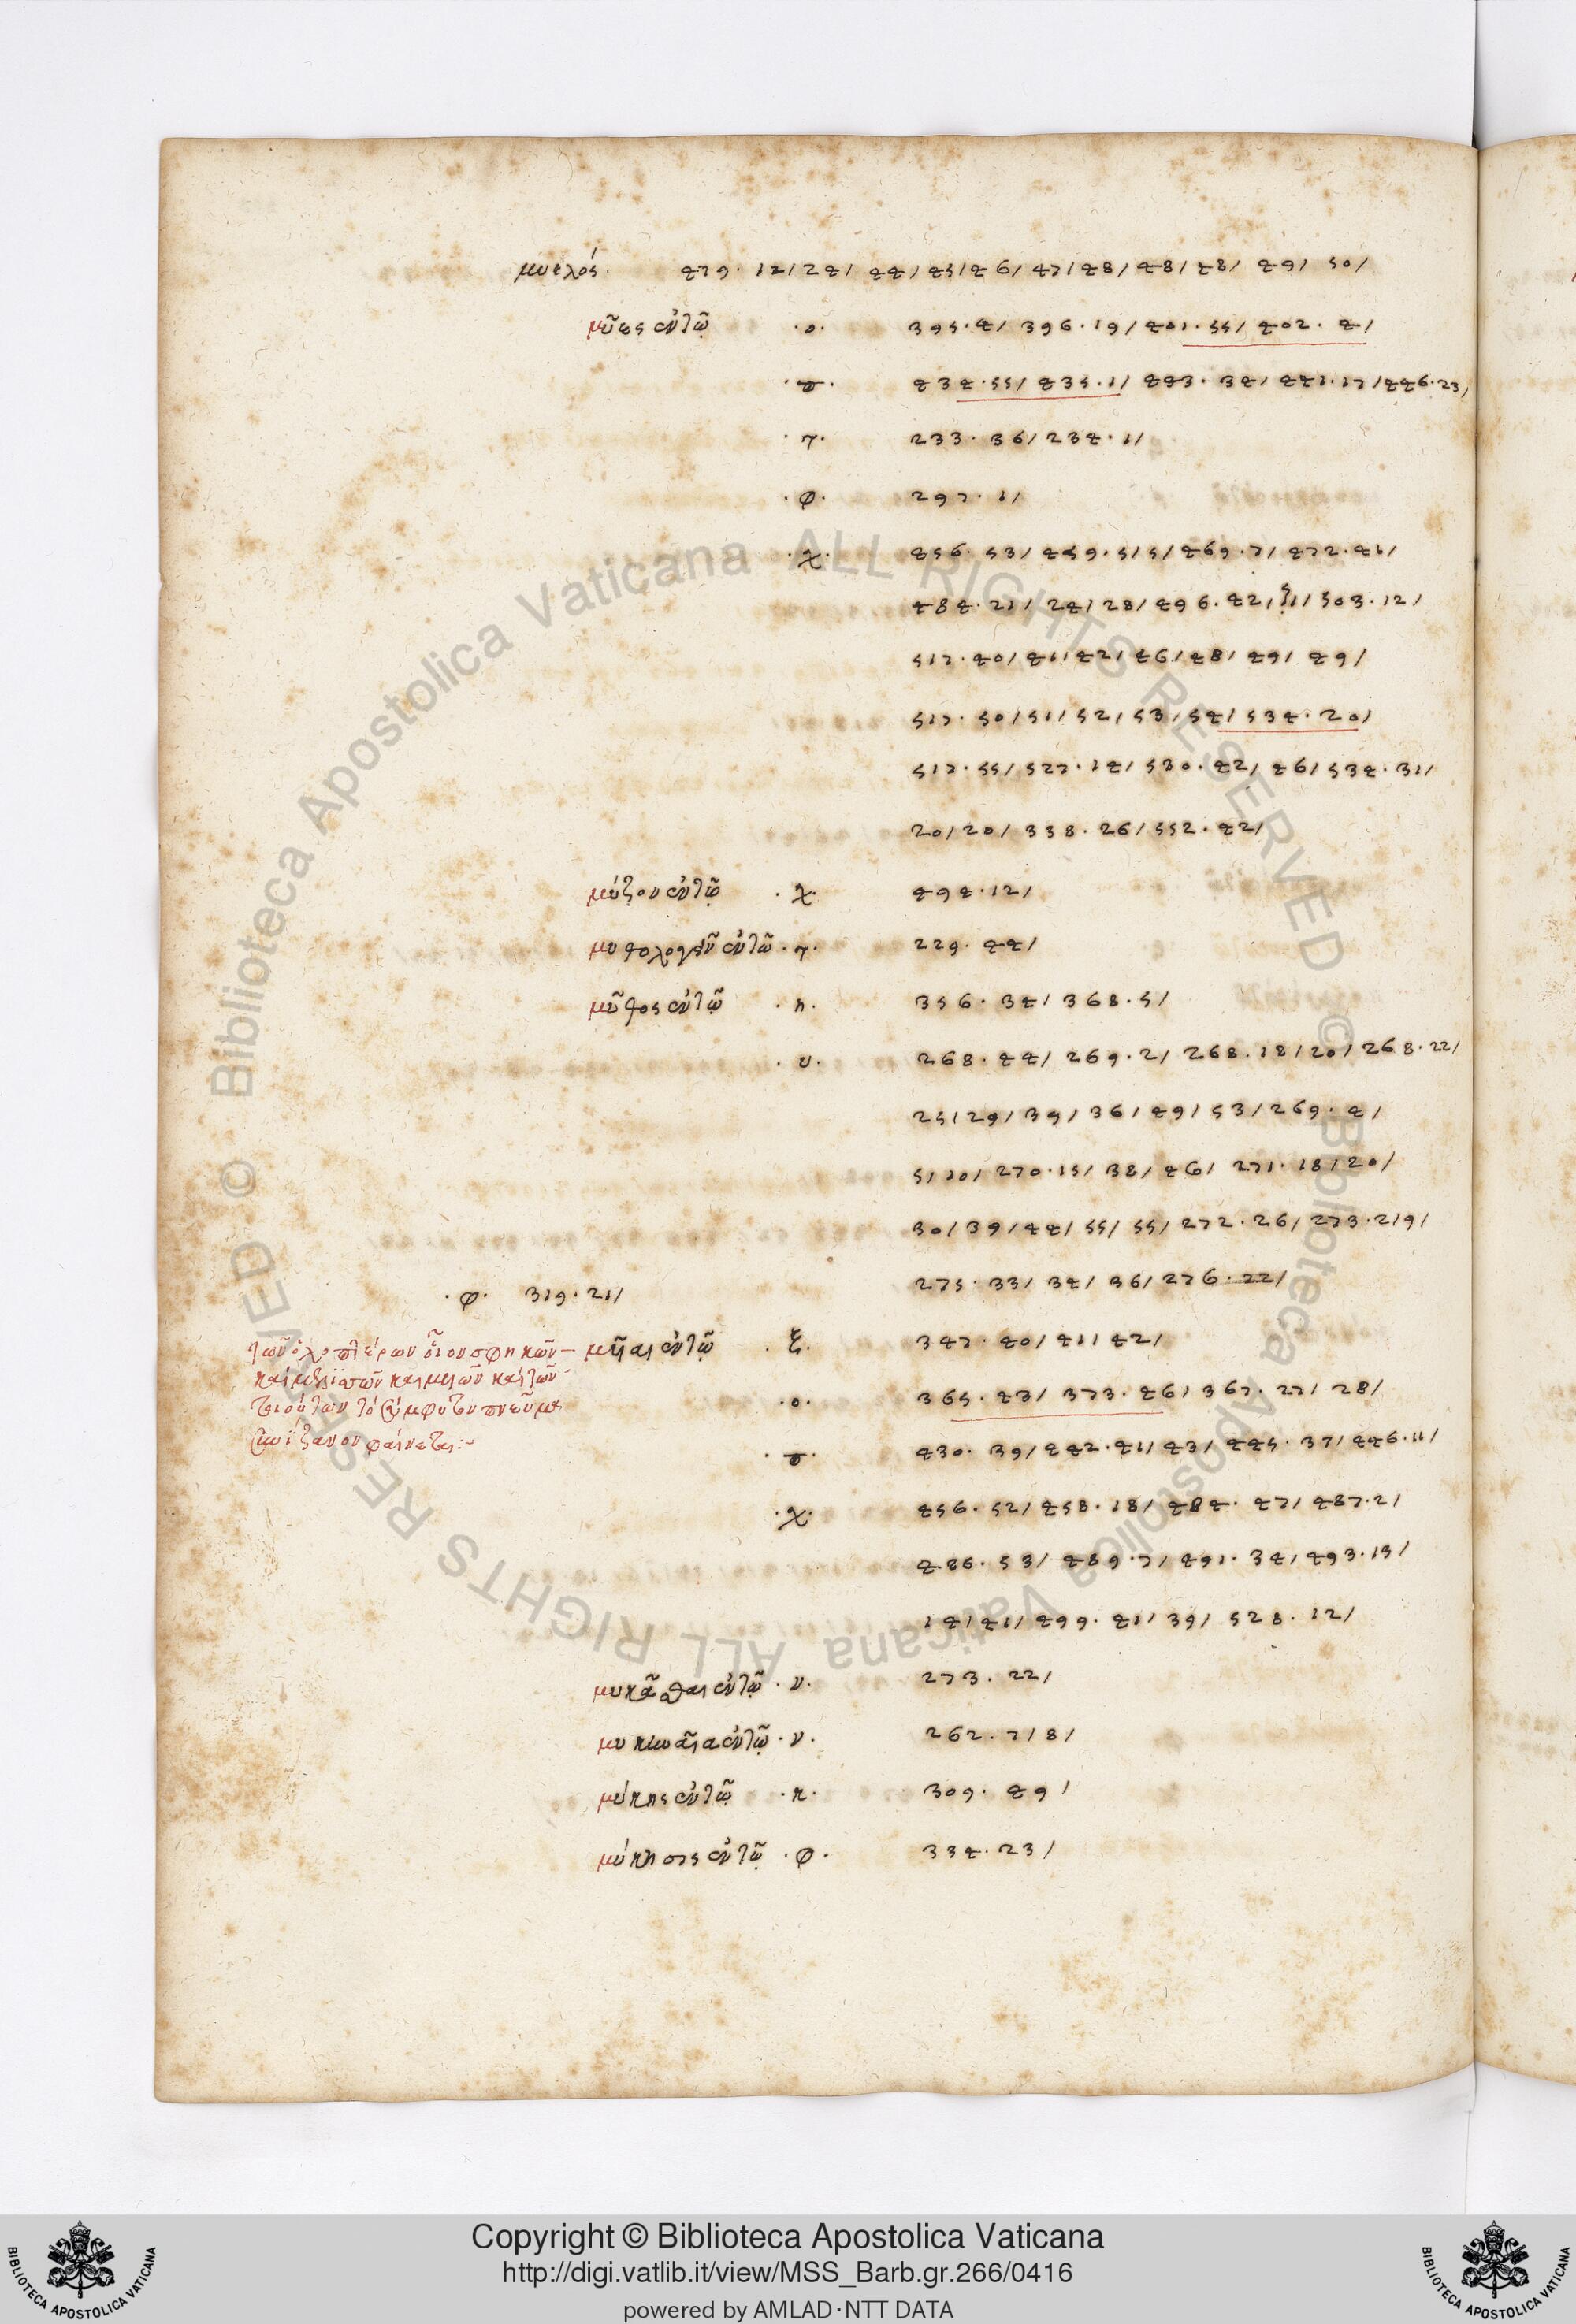 μυελός. 479. 12/ 24/ 44/ 45/ 46/ 47/ 48/ 48/ 48/ 49/ 50/
μύες ἐν τῷ .ο. 395.4/ 396.19/ 401.55/ 402.4/
434.55/ 435.1/ 443.34/ 441.17/ 446.23/
233.36/ 234.1/
.φ. 297.1/
.χ. 456.53/ 459.5/5/ 469.7/ 472.41/
484.21/ 24/ 28/ 496.42/ 503.12/
517.40/ 41/ 42/ 46/ 48/ 49/ 49/
517.50/ 51/ 52/ 53/ 54/ 534.20/
517.55/ 527.14/ 530.42/ 46/ 534.31/
20/ 20/ 338.26/ 552.42/
μύζον ἐν τῷ .χ. 494.12/
μυθολογεῖν ἐν τῷ 229.44/
μῦθος ἐν τῷ .η. 356.34/ 368.5/
.υ. 268.44/ 269.2/ 268.18/ 20/ 268.22/
25/ 29/ 39/ 36/ 49/ 53/ 269.4/
5/ 10/ 270.15/ 38/ 46/ 271.18/ 20/
30/ 39/ 44/ 55/ 55/ 272.26/ 273.2/9/
275.33/ 34/ 36/ 276.22/
.φ. 319.21/
τῶν ὁλοπτέρων οἷον σφηκῶν
καὶ μελιττῶν καὶ μυιῶν καὶ τῶν
τοιούτων τὸ σύμφυτον πνεῦμα
φαίνεται:~
μυῖαι ἐν τῷ .ξ. 347.40/ 41/ 42/
.ο. 365.43/ 373.46/ 367.27/ 28/
430.39/ 442.41/ 43/ 445.37/ 446.11/
.χ. 456.52/ 458.18/ 484.47/ 487.2/
486.53/ 489.7/ 491.34/ 493.13/
14/ 41/ 499.41/ 39/ 528.12/
μυκᾶσθαι ἐν τῷ .ν. 273.22/
ἐν τῷ .ν. 262.7/8/
μύκης ἐν τῷ .κ. 309.49/
μύκησις ἐν τῷ .φ. 334.23/
Copyright © Biblioteca Apostolica Vaticana
http://digi.vatlib.it/view/MSS_Barb.gr.266/0416
powered by AMLAD·NTT DATA